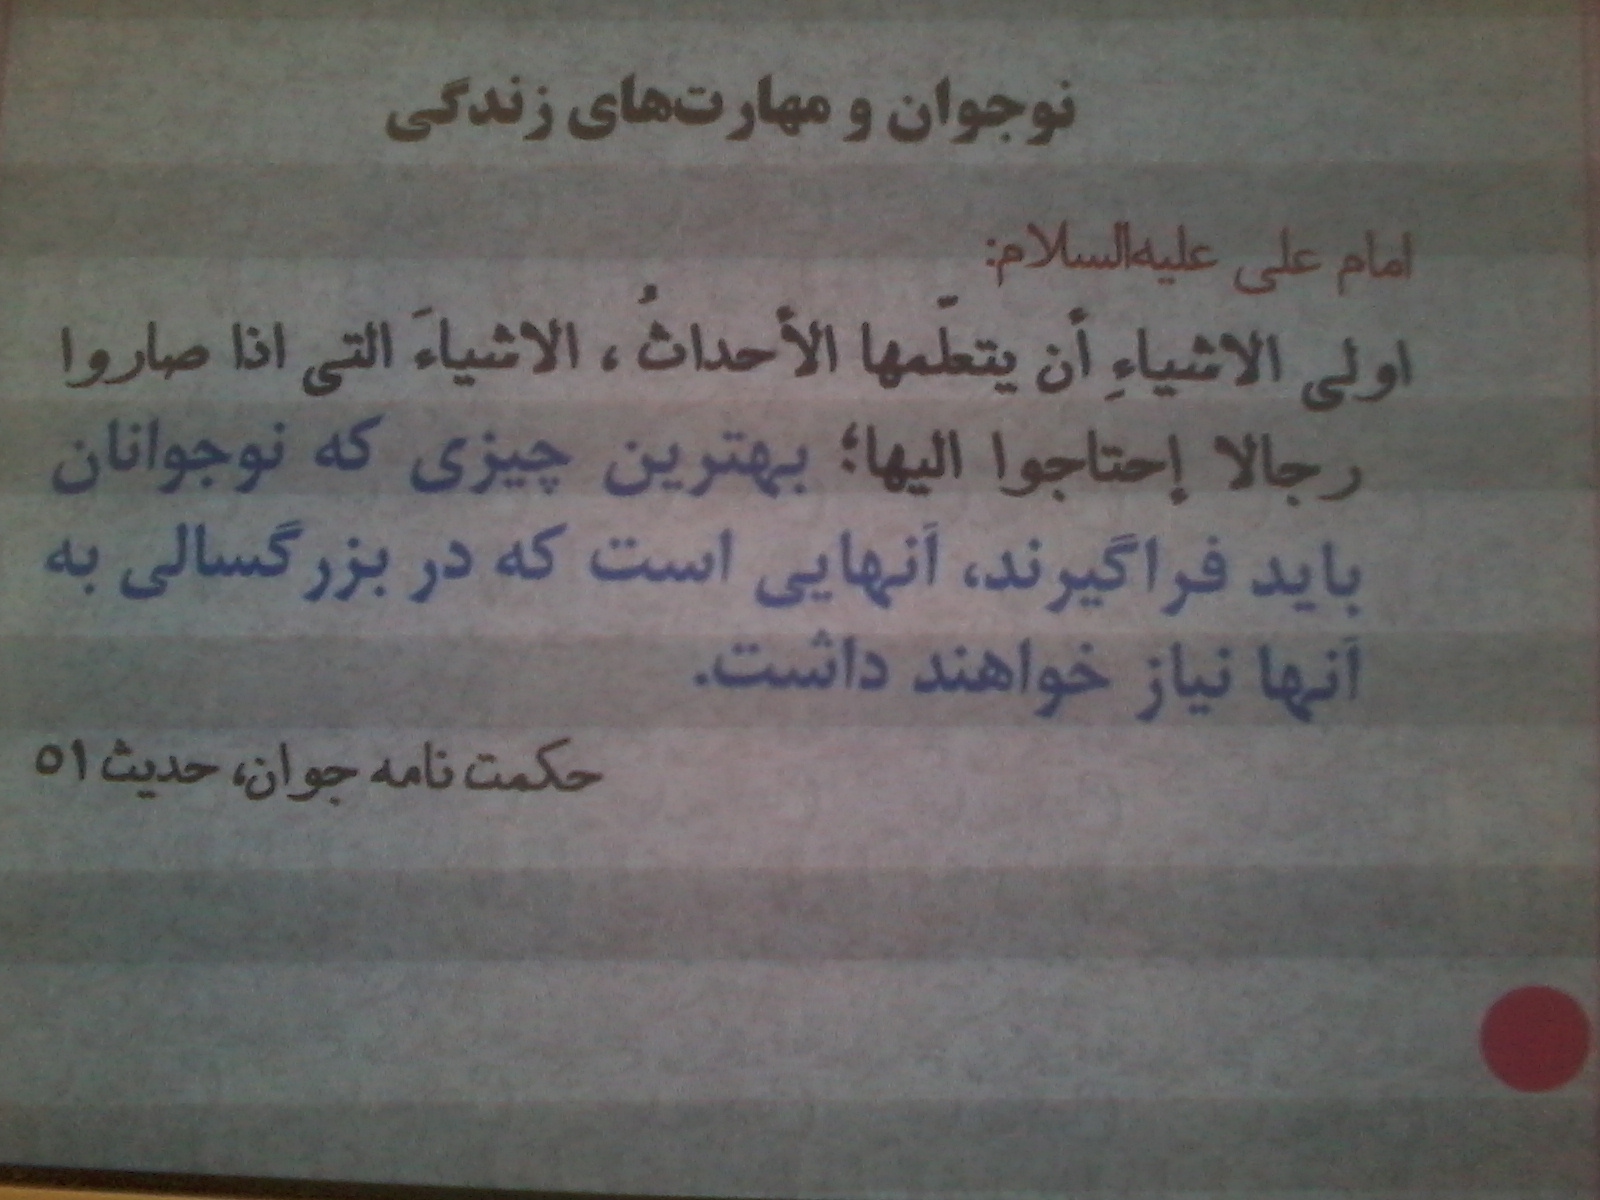 نوجوان و مهارت‌های زندگی
امام علی علیه‌السلام:
اولی الاشیاءِ أن يتعلّمها الأحداثُ ، الاشیاءَ التی اذا صاروا
رجالا إحتاجوا الیها؛ بهترین چیزی که نوجوانان
باید فراگیرند، آنهایی است که در بزرگسالی به
آنها نیاز خواهند داشت.
حکمت نامه جوان، حدیث ۵۱